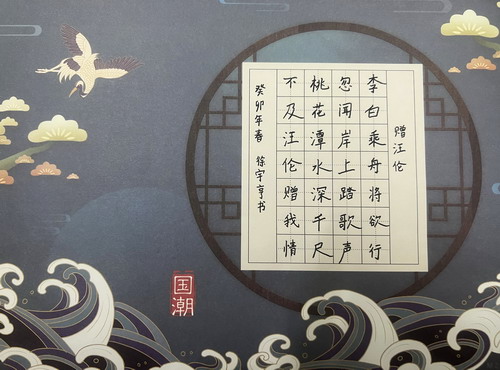 赠汪伦
李白乘舟将欲行
忽闻岸上踏歌声
桃花潭水深千尺
不及汪伦赠我情
癸卯年春 徐宇亨书
国潮